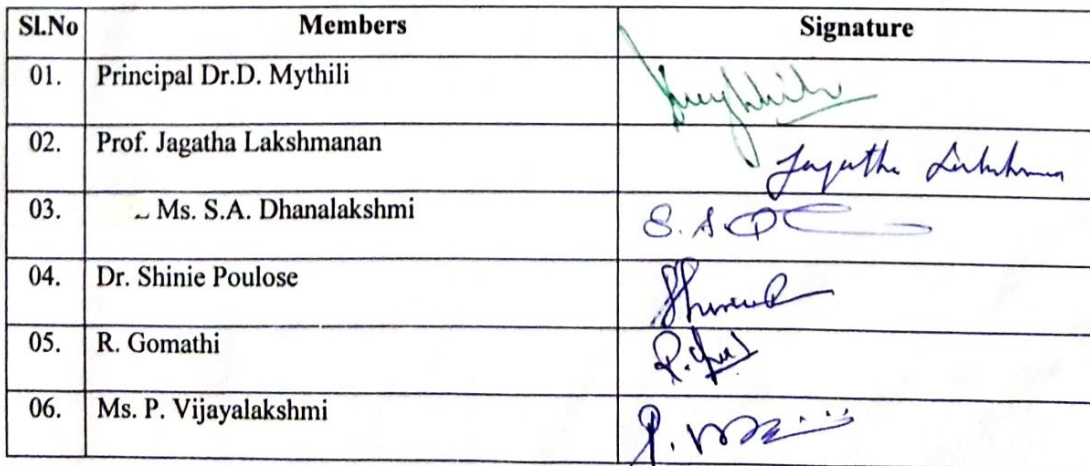 Sl.No Members Signature
01. Principal Dr.D. Mythili
02. Prof. Jagatha Lakshmanan Jagatha
03. Ms. S.A. Dhanalakshmi S.A
04. Dr. Shinie Poulose
05. R. Gomathi
06. Ms. P. Vijayalakshmi